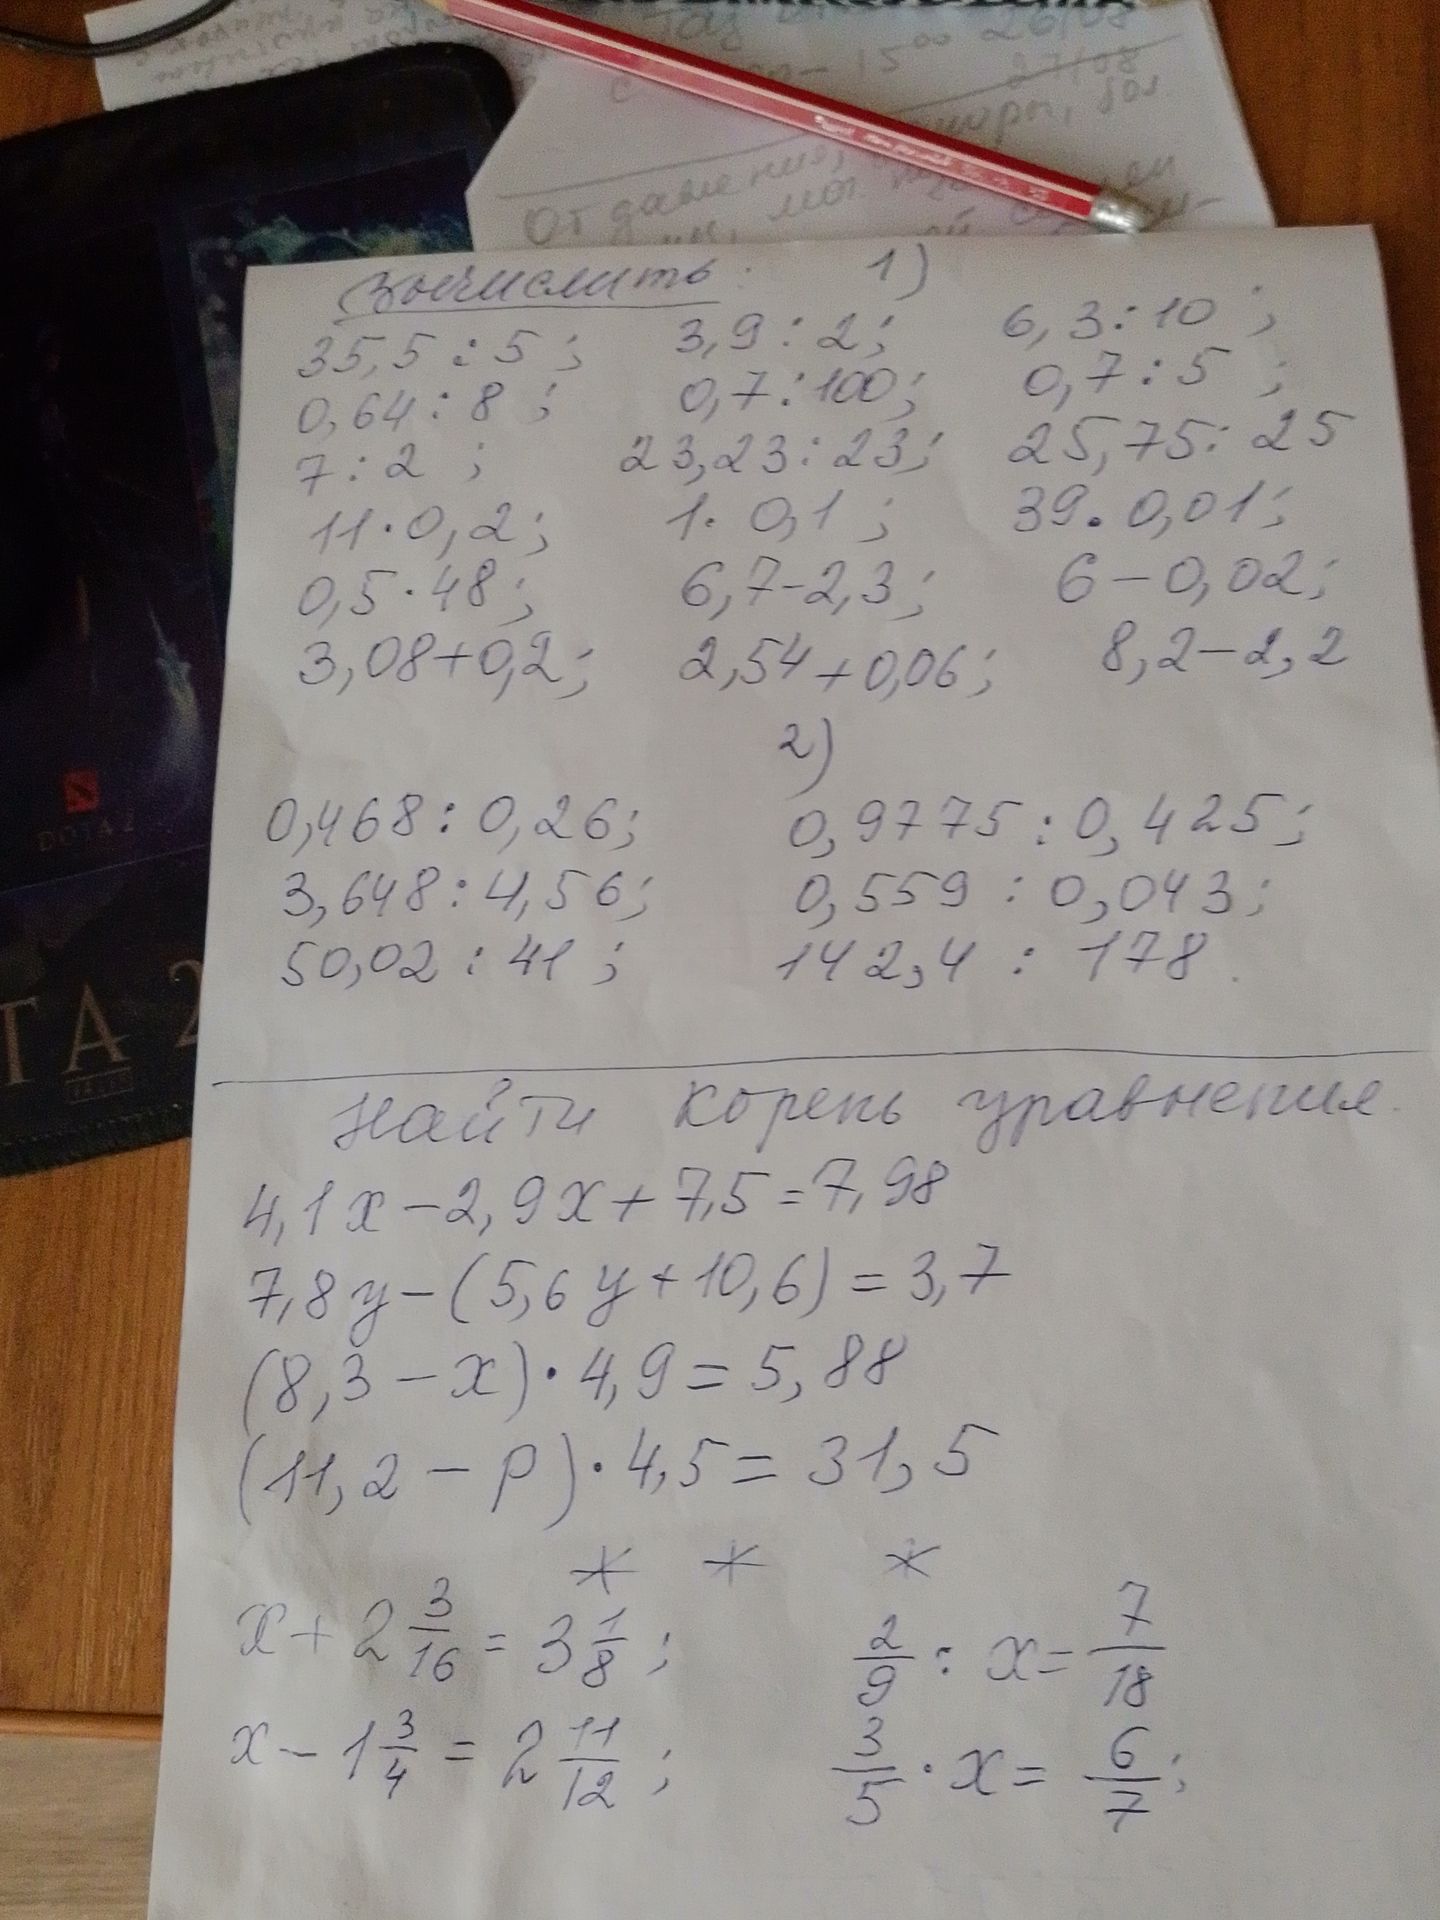 Таз
15⁰⁰ 26/08
27/08
От давления,
Вычислить: 1)
35,5 : 5; 3,9 : 2; 6,3 : 10;
0,64 : 8; 0,7 : 100; 0,7 : 5;
7 : 2; 23,23 : 23; 25,75 : 25
11 · 0,2; 1 · 0,1; 39 · 0,01;
0,5 · 48; 6,7 - 2,3; 6 - 0,02;
3,08 + 0,2; 2,54 + 0,06; 8,2 - 2,2
2)
0,468 : 0,26; 0,9775 : 0,425;
3,648 : 4,56; 0,559 : 0,043;
50,02 : 41; 142,4 : 178.
DOTA 2
TA 2
Найти корень уравнения.
4,1x - 2,9x + 7,5 = 7,98
7,8y - (5,6y + 10,6) = 3,7
(8,3 - x) · 4,9 = 5,88
(11,2 - p) · 4,5 = 31,5
* * *
x + 2 3/16 = 3 1/8; 2/9 : x = 7/18
x - 1 3/4 = 2 11/12; 3/5 · x = 6/7;